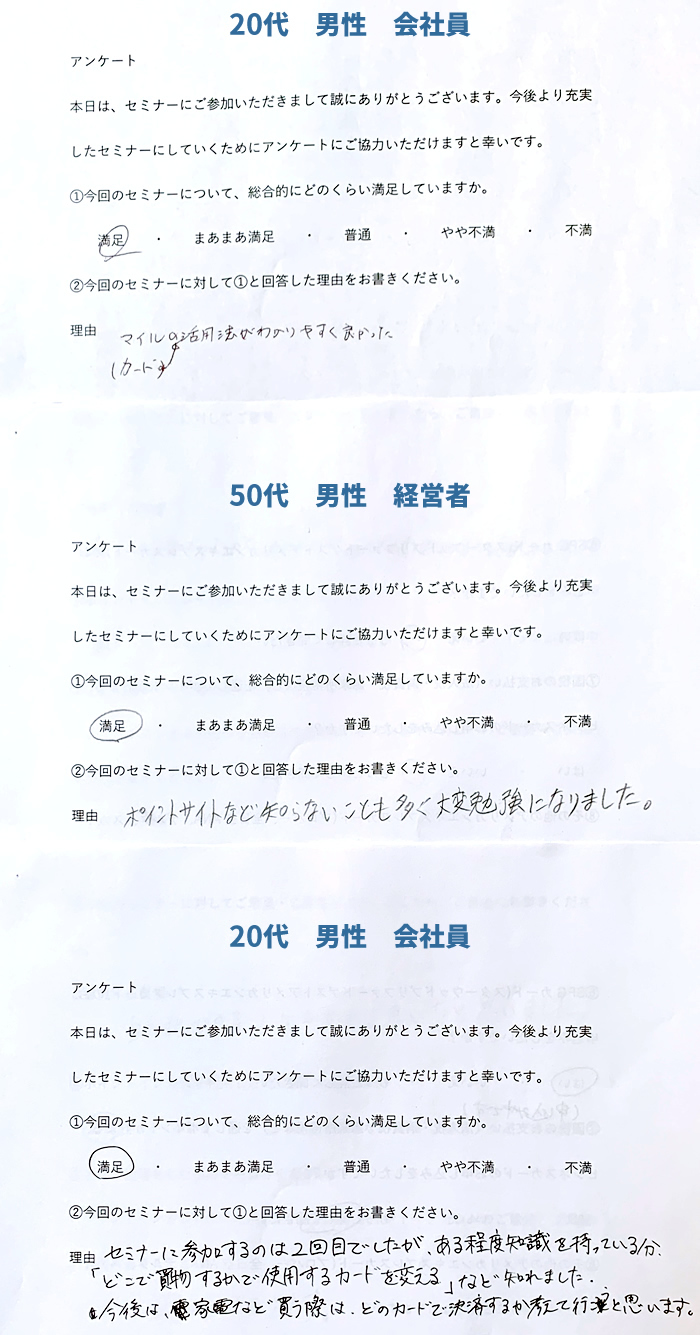 20代　男性　会社員
アンケート
本日は、セミナーにご参加いただきまして誠にありがとうございます。今後より充実
したセミナーにしていくためにアンケートにご協力いただけますと幸いです。
①今回のセミナーについて、総合的にどのくらい満足していますか。
満足　・　まあまあ満足　・　普通　・　やや不満　・　不満
②今回のセミナーに対して①と回答した理由をお書きください。
理由　マイルの活用法がわかりやすく良かった
(カード)
50代　男性　経営者
アンケート
本日は、セミナーにご参加いただきまして誠にありがとうございます。今後より充実
したセミナーにしていくためにアンケートにご協力いただけますと幸いです。
①今回のセミナーについて、総合的にどのくらい満足していますか。
満足　・　まあまあ満足　・　普通　・　やや不満　・　不満
②今回のセミナーに対して①と回答した理由をお書きください。
理由　ポイントサイトなど知らないことも多く大変勉強になりました。
20代　男性　会社員
アンケート
本日は、セミナーにご参加いただきまして誠にありがとうございます。今後より充実
したセミナーにしていくためにアンケートにご協力いただけますと幸いです。
①今回のセミナーについて、総合的にどのくらい満足していますか。
満足　・　まあまあ満足　・　普通　・　やや不満　・　不満
②今回のセミナーに対して①と回答した理由をお書きください。
理由　セミナーに参加するのは2回目でしたが、ある程度知識を持っている分、
「どこで買物するかで使用するカードを変える」など知れました。
今後は、家電など買う際は、どのカードで決済するか考えて行こうと思います。